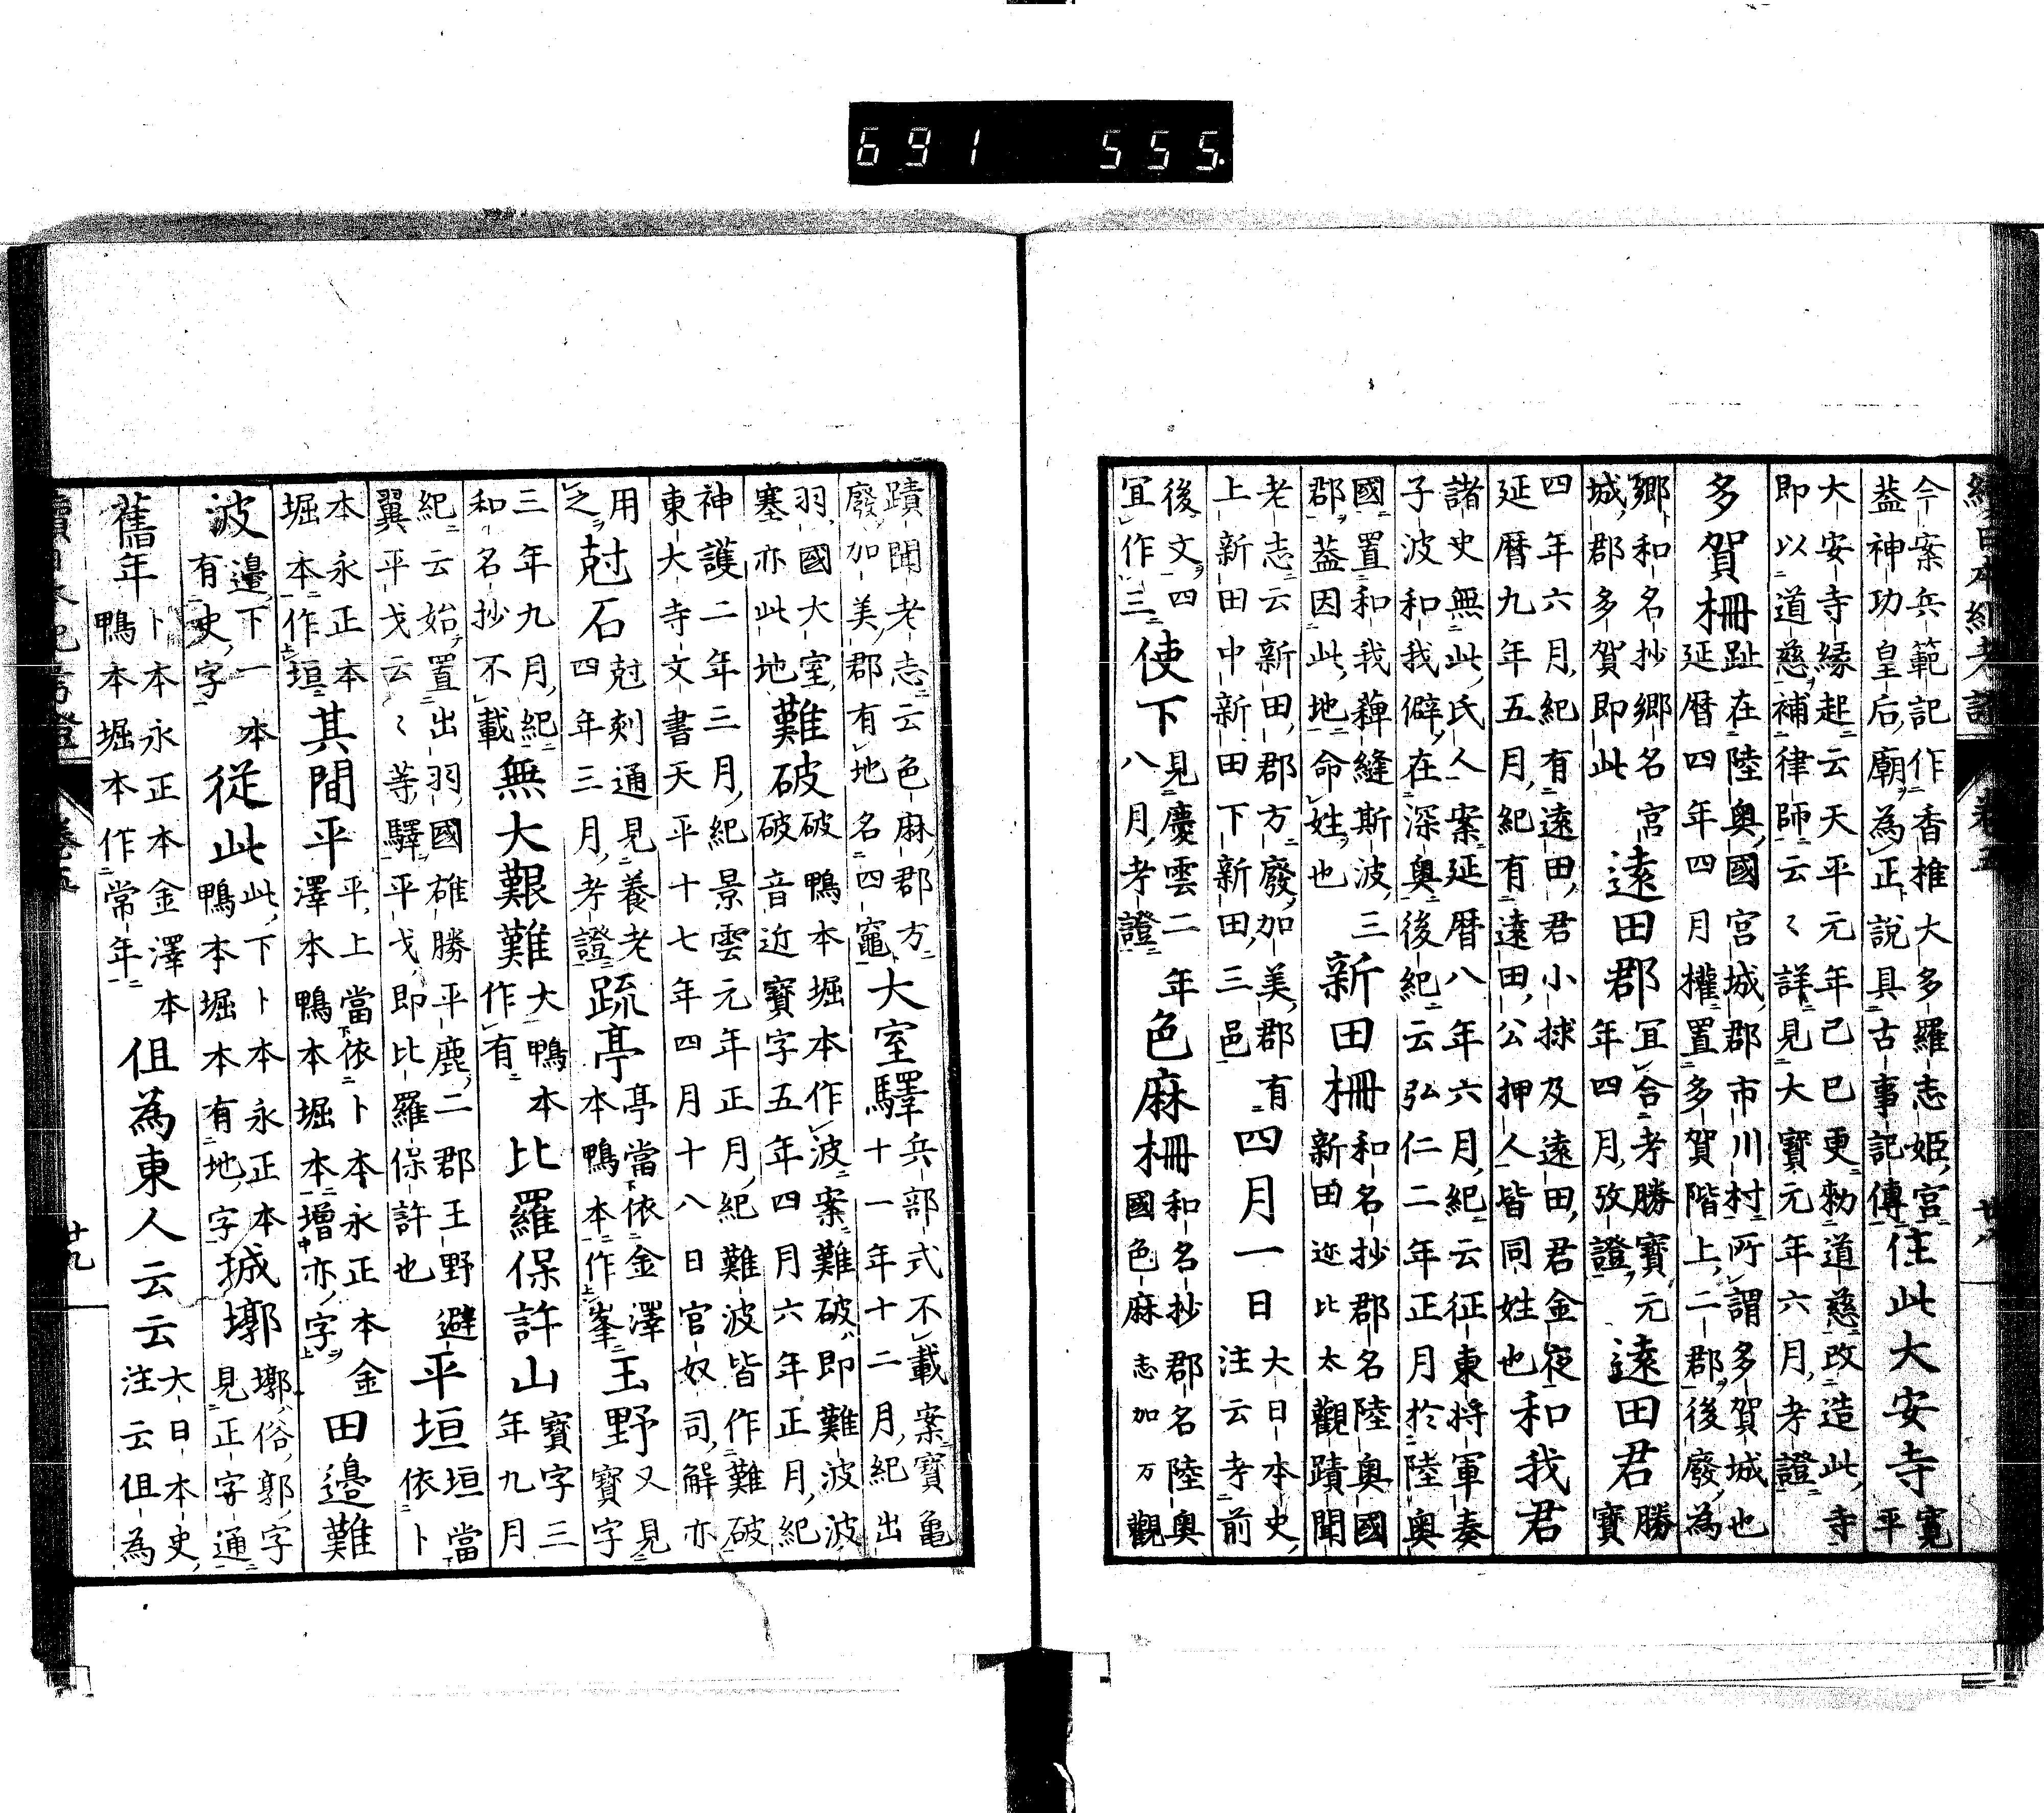 691 555.
續日本紀考證 卷五 廿八
今案兵範記作香椎大多羅志姫宮蓋神功皇后廟為正說具古事記傳住此大安寺寬平
大安寺緣起云天平元年己巳更勑道慈改造此寺即以道慈補律師云〻詳見大寶元年六月考證
多賀柵趾在陸奥國宮城郡市川村所謂多賀城也延暦四年四月權置多賀階上二郡後廢為
鄉和名抄鄉名宮城郡多賀即此遠田郡宜合考勝寶元年四月攷證遠田君勝寶
四年六月紀有遠田君小捄及遠田君金夜延暦九年五月紀有遠田公押人皆同姓也和我君
諸史無此氏人案延暦八年六月紀云征東將軍奏子波和我僻在深奥後紀云弘仁二年正月於陸奥
國置和我薭縫斯波三郡蓋因此地命姓也新田柵和名抄郡名陸奥國新田迩比太觀蹟聞
老志云新田郡方廢加美郡有上新田中新田下新田三邑四月一日大日本史注云考前
後文四宜作三使下見慶雲二年八月考證色麻柵和名抄郡名陸奥國色麻志加万觀
蹟聞老志云色麻郡方廢加美郡有地名四竈大室驛兵部式不載案寶亀十一年十二月紀出
羽國大室塞亦此地難破破鴨本堀本作波案難破即難波波破音近寶字五年四月六年正月紀
神護二年三月紀景雲元年正月紀難波皆作難破東大寺文書天平十七年四月十八日官奴司解亦
用之尅石尅刻通見養老四年三月考證䟽亭亭當依金澤本鴨本作峯玉野又見寶字
三年九月紀和名抄不載無大艱難大鴨本作有比羅保許山寶字三年九月
紀云始置出羽國碓勝平鹿二郡王野避翼平戈云〻等驛平戈即比羅保許也平垣垣當依卜
本永正本堀本作垣其間平平上當依卜本永正本金澤本鴨本堀本增亦字田邊難
波邊下一本有史字從此此下卜本永正本鴨本堀本有地字城墎墎俗郭字見正字通
舊年卜本永正本金澤本鴨本堀本作常年伹為東人云云大日本史注云伹為
續日本紀考證 卷五 廿九